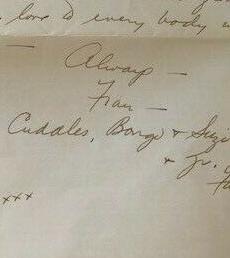 love to every body
Always —
Fran —
Cuddles, Bongo + Suzi
+ Jr.
xxx